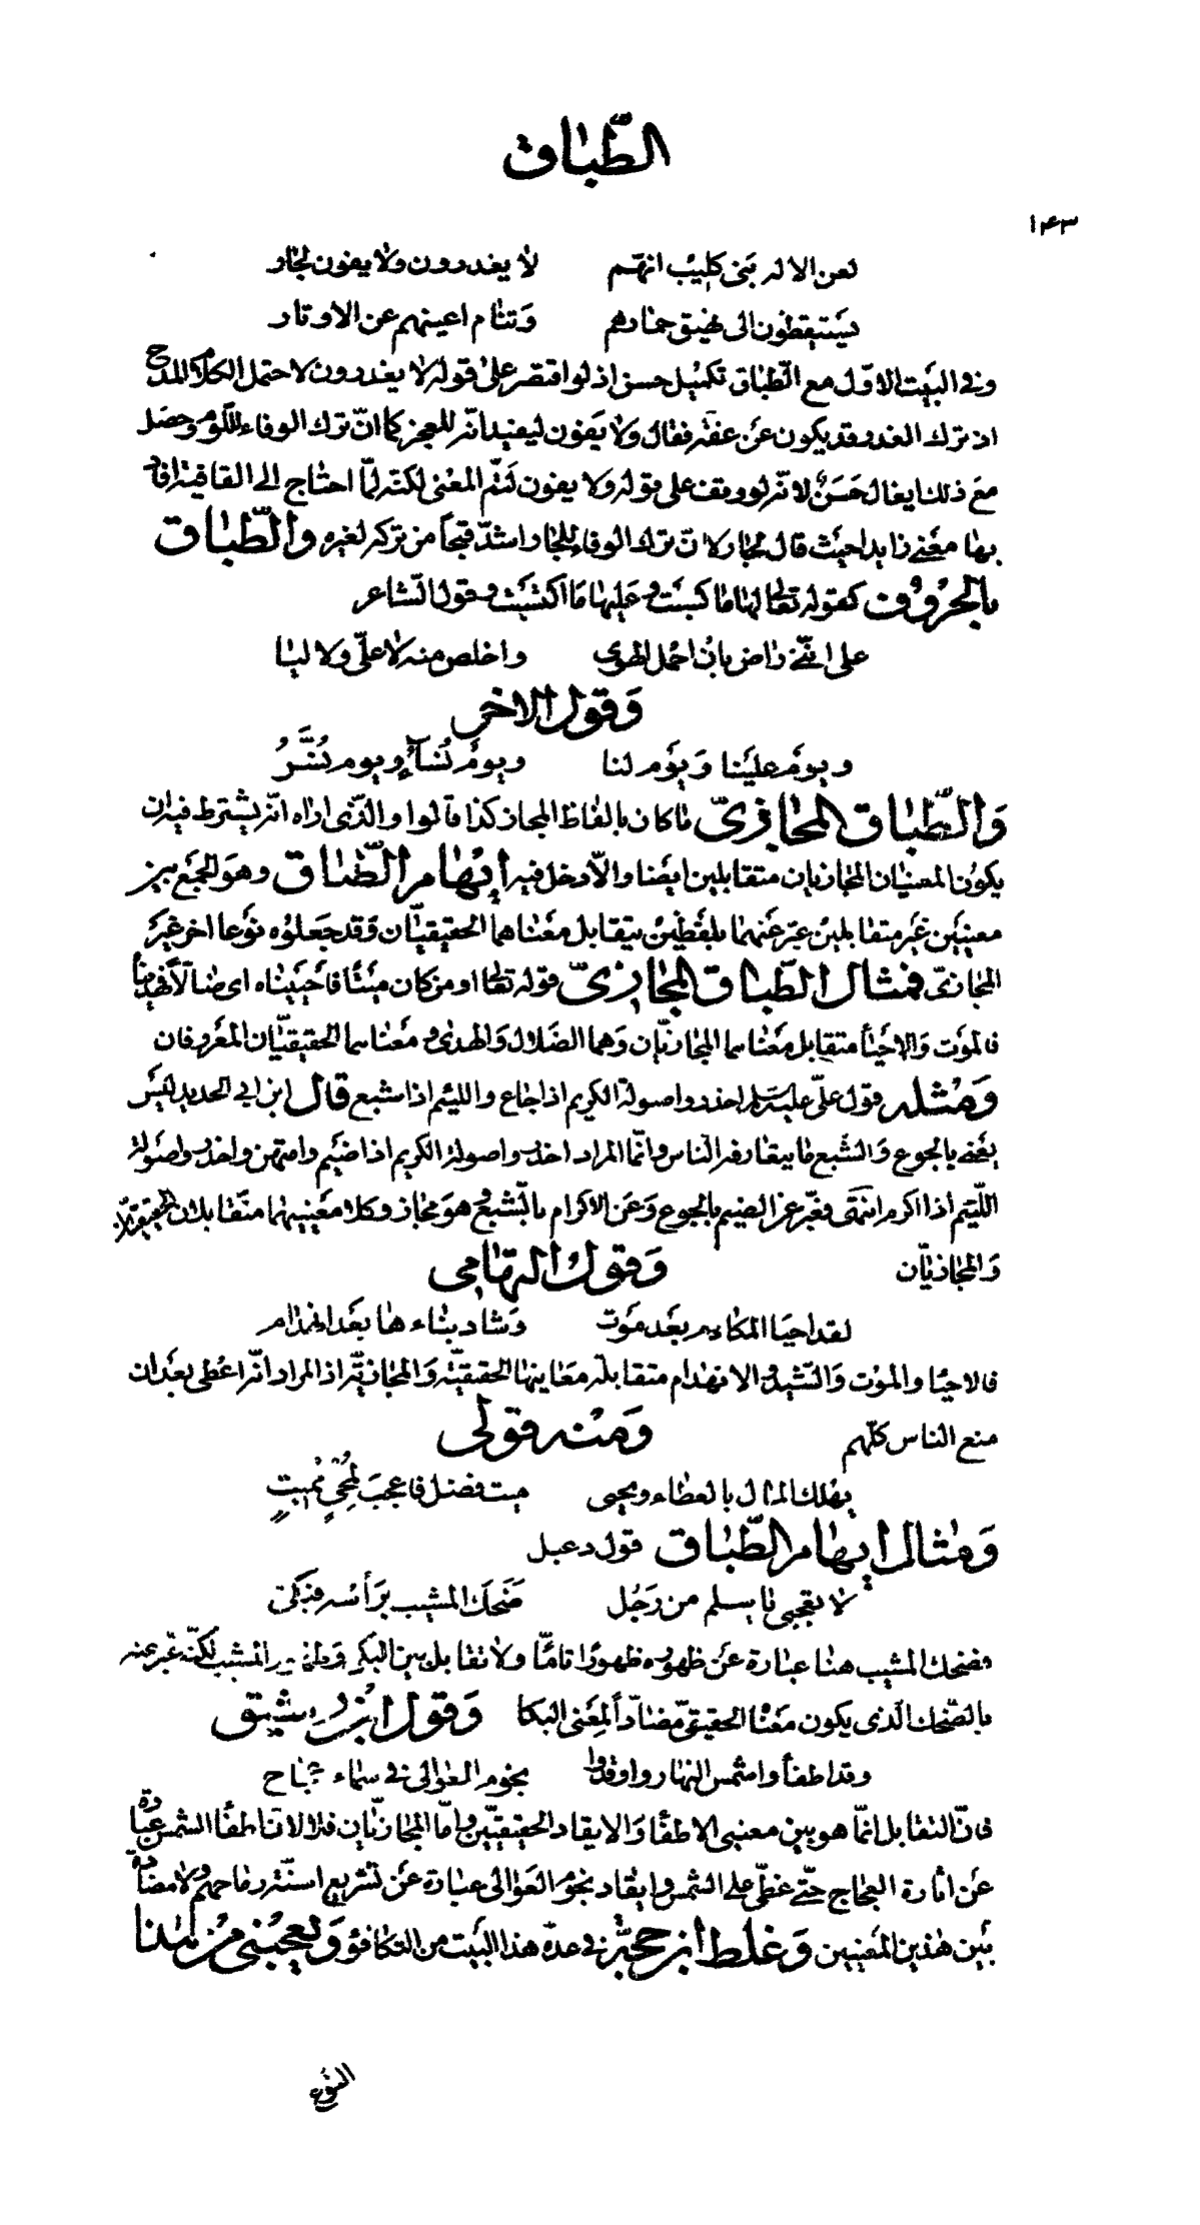 الطّباق
١٤٣
لعن الاله بَنى كليْب انهّم لا يغدرون ولا يفون لجار
يستيقظون الى نهيق حمارهم وَتنام اعينهم عن الاوتار
وفى البيَت الاوّل مع الطّباق تكميل حسن اذ لو اقتصر على قوله لا يغدرون لاحتمل الكلام المدح
اذ ترك الغدر قد يكون عَن عفّة فقال ولا يَفون ليفيد انّه للعجز كما انّ ترك الوفاء للّؤم وحصَل
معَ ذلك ايغال حَسَنٌ لانّه لو وقف على قوله ولا يفون لَتمّ المعْنى لكنّه لمّا احتاج الى القافية افاد
بها معْنى زايدا حيَث قال لجار لانّ ترك الوفاء للجار اشدّ قبحاً من تركه لغيره والطّباق
بالحُروُف كقوله تعالى لها ما كسَبت وعَليها مَا اكتسَبَت وقول الشّاعر
على انّنى راض بان احمل الهوى واخلص منه لا علىّ ولا ليا
وَقول الاخر
ويومٌ عليَنا وَيوَم لنا ويومٌ نُسآءُ ويوم نُسَّرُ
وَالطّباق المجازىّ ما كان بالفاظ المجاز كذا قالوا والذّى اراه انّه يشترط فيه ان
يكون المعنيان المجازيان متقابلين ايضا والاّ دخل فيه ايهَام الطّباق وهو الجمَع بين
معنيَين غيَر متقابلين عبّر عَنهما بلفظيْن يتقابل معَناهما الحقيقيّان وَقد جعَلوُه نوَعا اخر غيَر
المجازىّ فمثال الطّباق المجازىّ قوله تعالى اومن كان ميَتًا فاَحيَيناه اى ضالاًّ فهديناه
فالموَت وَالاحيَاء متقابل معَناهما المجازيّان وَهما الضَلال وَالهدى ومعَناهما الحقيقيّان المعَروفان
وَمثله قول علىّ عليه السّلم احذروا صولة الكريم اذا جاع واللئيم اذا شبع قال ابن ابى الحديد ليسَ
يعَنى بالجوع وَالشّبع ما يتعارفه النّاس وانمّا المراد احذروا صولة الكريم اذا ضيَم وامتهن واحذروا صَولة
اللّئيم اذا اكرم انتهَى فعَبّر عن الضيم بالجوع وَعَن الاكرام بالشّبع وهوَ مجاز وكلا معَنييهما متَقابلان الحقيقيّان
وَالمجازيّان وَقول التّهامى
لقد احيَا المكارم بعَد موَت وَشاد بناءها بعَد انهدام
فالاحياء والموْت وَالتّشييد والانهدام متقابلة معَاينها الحقيقيّة وَالمجازيّة اذ المراد انّه اعْطى بعَد ان
منع الناس كلّهم وَمنْه قولى
يهْلك المال بالعطاء ويحيى ميت فضل فاعجبَ لمُحْىٍ مُميتٍ
وَمثال ايهام الطّباق قول دعبل
لا تعَجبى يا سلم من رَجُل ضَحكَ المشيب برَأسه فبَكى
فضحك المشيب هنا عبارة عَن ظهوُره ظهورًا تامًّا ولا تقابل بين البكاء وَظهور المشيب لكنّه عّبر عنه
بالضّحك الّذى يكون معَناه الحقيقىّ مضادّاً لمِعَنى البكا وَقول ابْن رشيق
وقد اطفأوا شمس النهار واوقدوا نجوم العوالى فى سماء عجاج
فانّ التقابل انمّا هو بين معنيى الاطفاء وَالايقاد الحقيقيّين وامّا المجازيّان فلا لانّ اطفَاء الشمس عبارة
عَن اثارة العجاج حتّى غطّى على الشمس وايقاد نجوُم العَوالى عبارة عَن تشريع اسنّة رماحهم ولا مضادّة
بيَن هذين المعَنيين وَغلط ابن حجّة فى عدّه هذا البيَت من التكافؤ وَيعجبُنى من هذا
النّوع